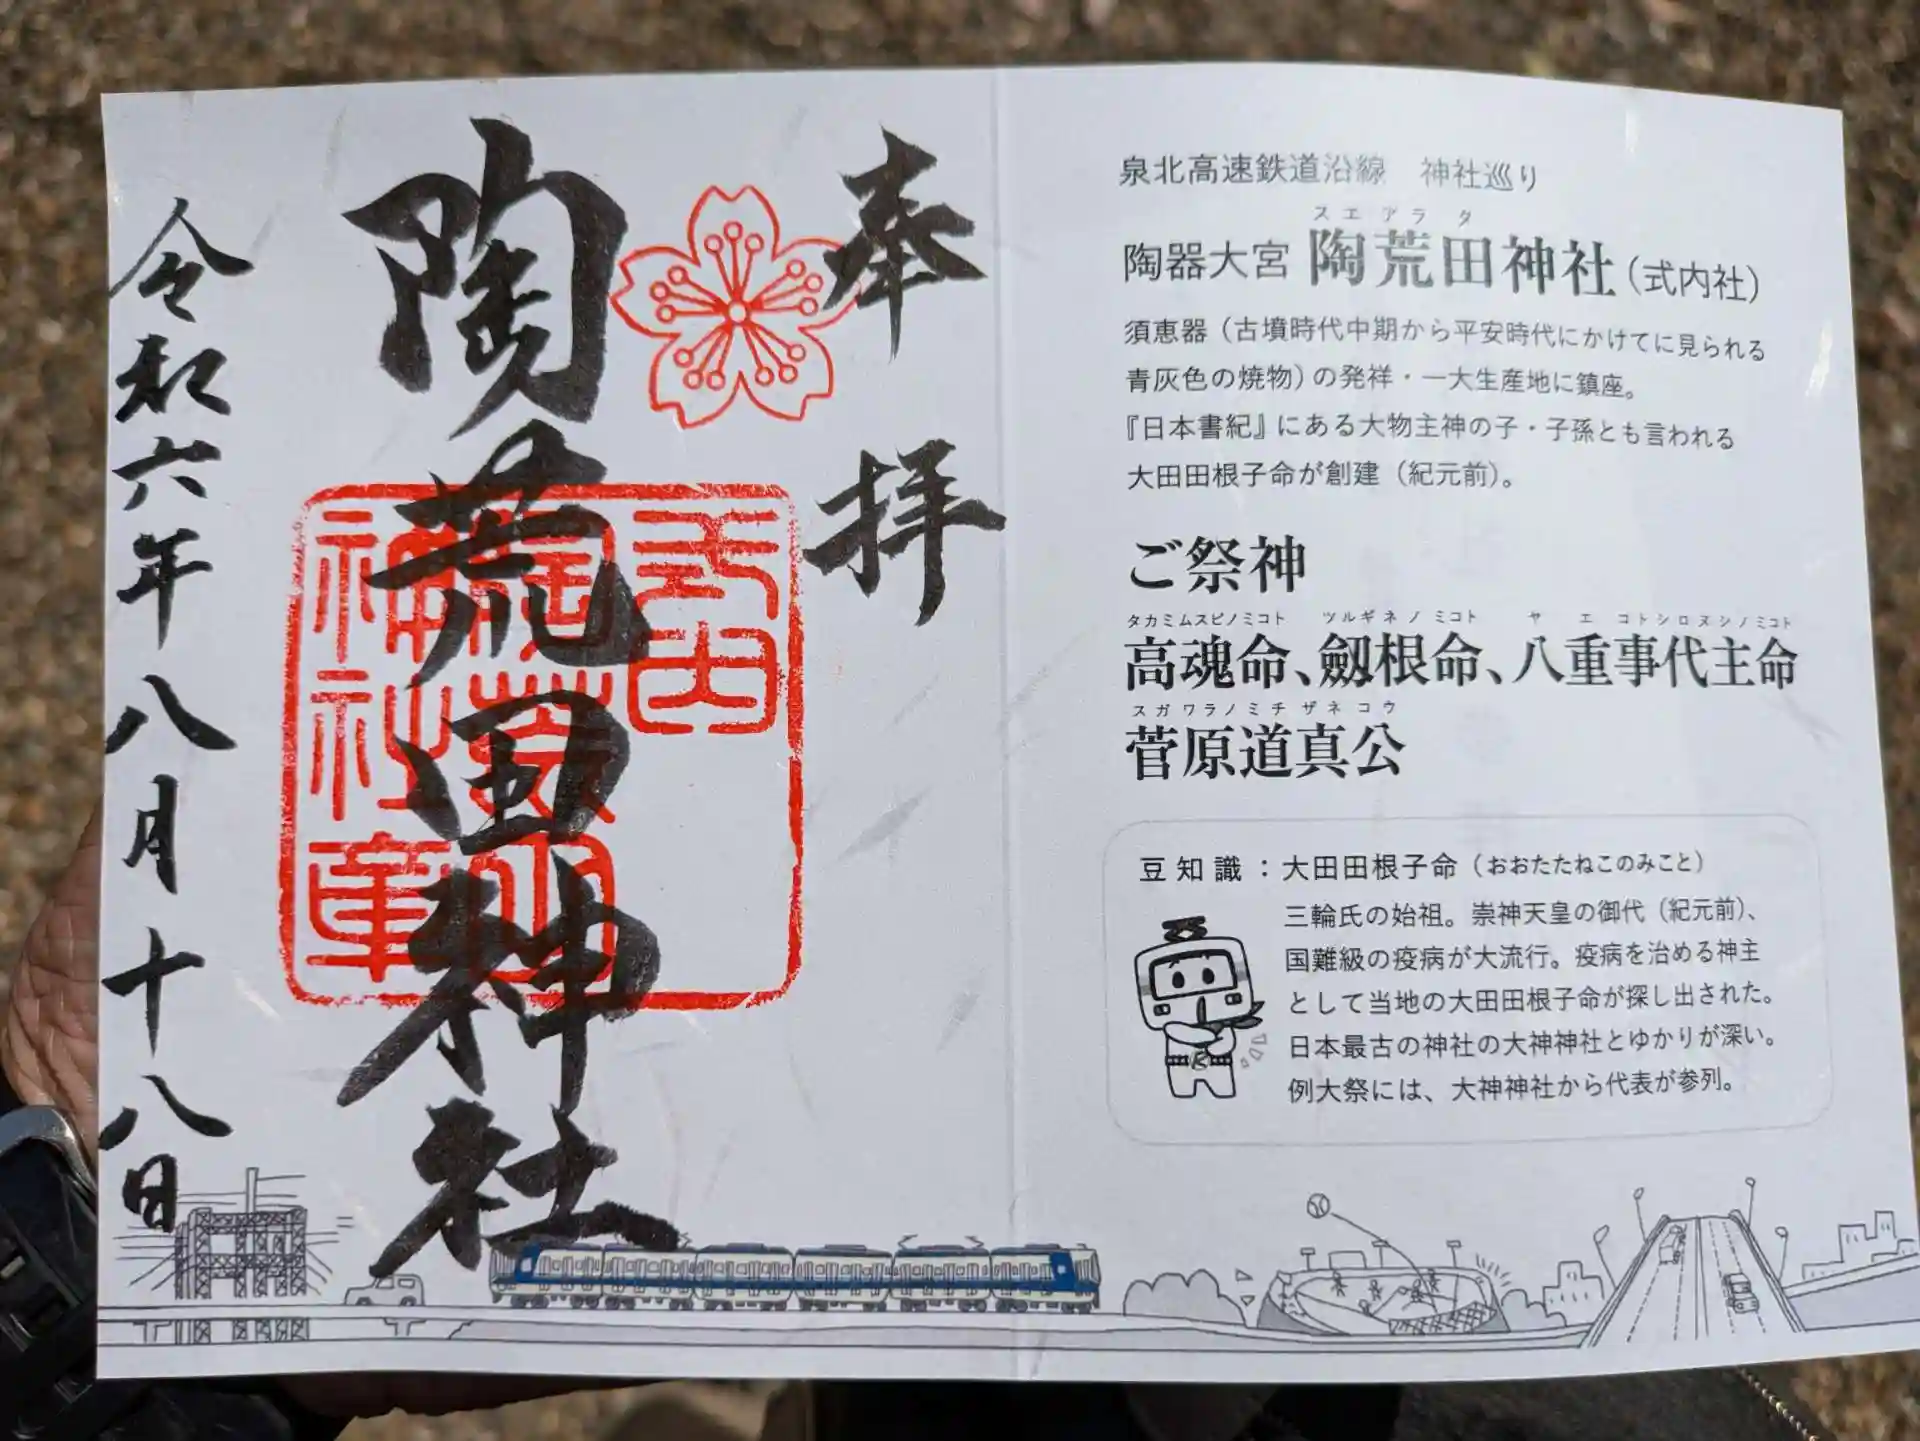 奉拝
陶荒田神社
令和六年八月十八日
式内
陶荒田
神社章
泉北高速鉄道沿線　神社巡り
スエアラタ
陶器大宮 陶荒田神社（式内社）
須恵器（古墳時代中期から平安時代にかけてに見られる
青灰色の焼物）の発祥・一大生産地に鎮座。
『日本書紀』にある大物主神の子・子孫とも言われる
大田田根子命が創建（紀元前）。
ご祭神
タカミムスビノミコト　ツルギネノミコト　ヤエコトシロヌシノミコト
高魂命、劔根命、八重事代主命
スガワラノミチザネコウ
菅原道真公
豆知識：大田田根子命（おおたたねこのみこと）
三輪氏の始祖。崇神天皇の御代（紀元前）、
国難級の疫病が大流行。疫病を治める神主
として当地の大田田根子命が探し出された。
日本最古の神社の大神神社とゆかりが深い。
例大祭には、大神神社から代表が参列。